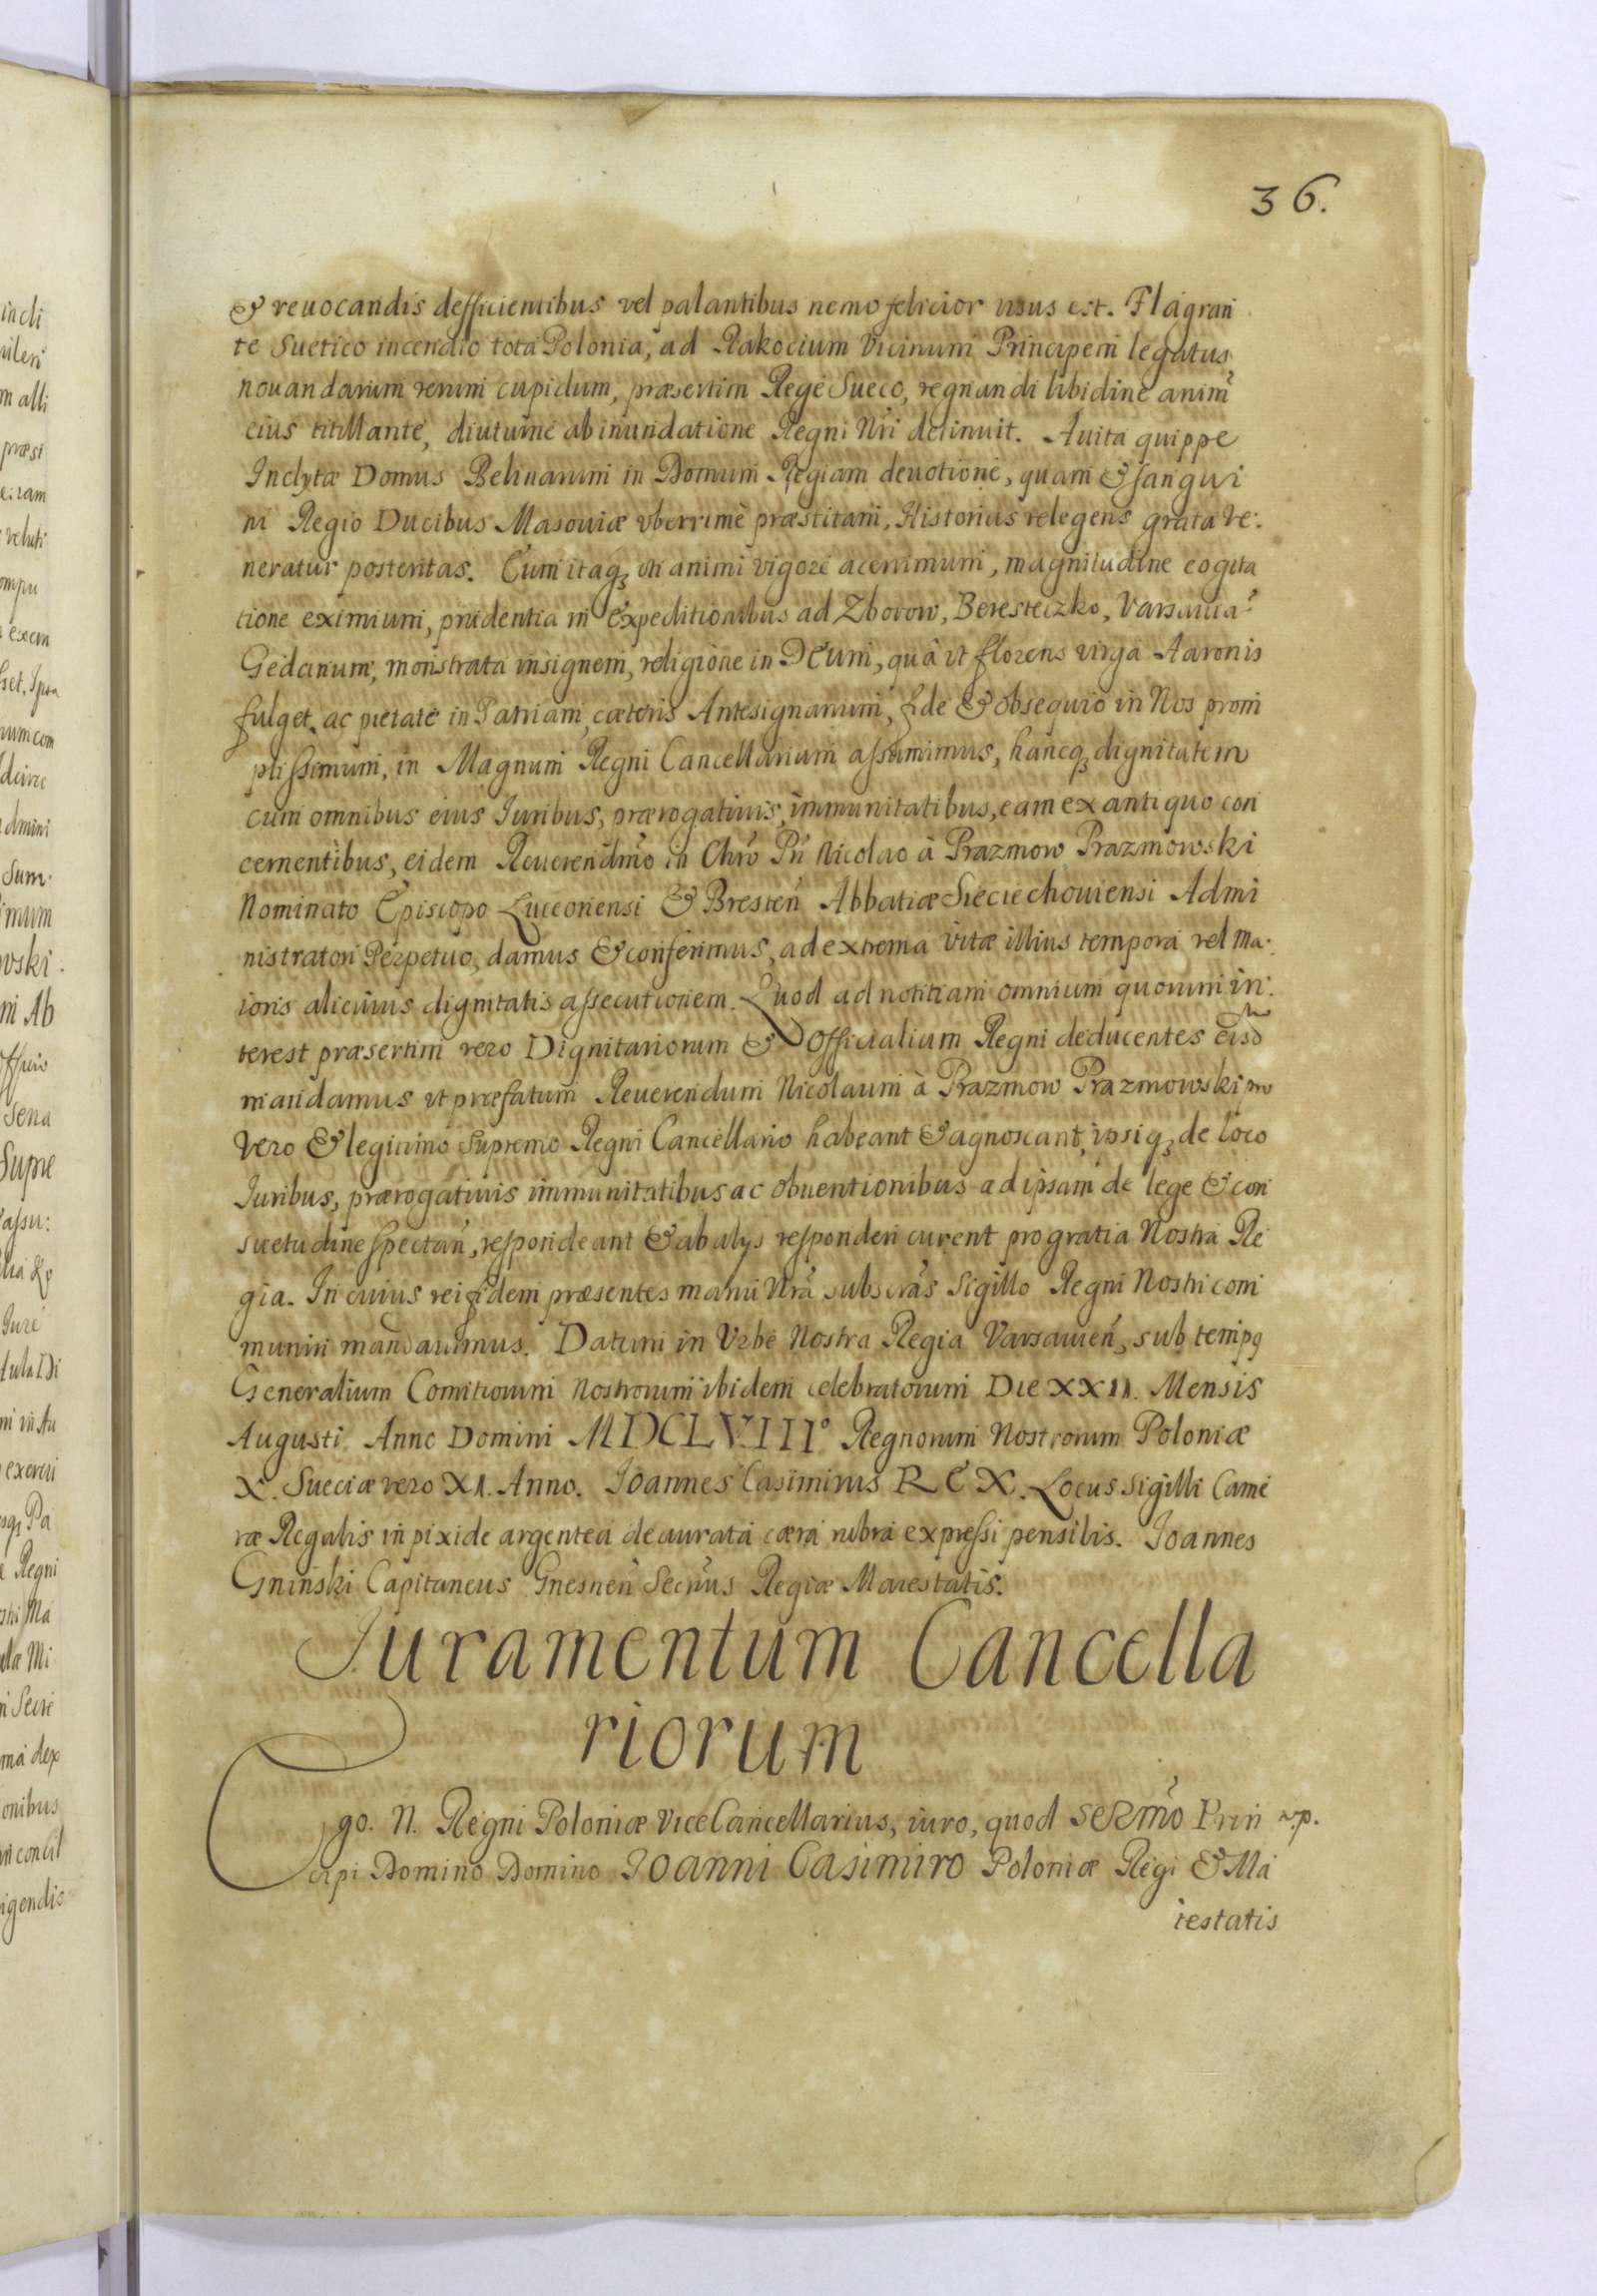 36.
& reuocandis defficientibus vel palantibus nemo felicior visus est. Flagran
te Suetico incendio tota Polonia, ad Rakocium Vicinum Principem legatus,
nouandarum rerum cupidum, præsertim Rege Sueco, regnandi libidine anim̃
eius titillante, diutume ab inundatione Regni Nri detinuit. Auita quippe
Inclytæ Domus Belinarum in Domum Regiam deuotione, quam & sangui
ni Regio Ducibus Masouiæ vberrimè præstitam, Historias relegens grata ve:
neratur posteritas. Cum itaq; animi vigore acerrimum, magnitudine cogita
tione eximium, prudentia in Expeditionibus ad Zborow, Beresteczko, Varsauia
Gedanum, monstrata insignem, religione in DEum, quâ vt florens virga Aaronis
fulget, ac pietate in Patriam, cæteris Antesignanum, fide & obsequio in Nos prom
ptissimum, in Magnum Regni Cancellarium assumimus, hancq; dignitatem
cum omnibus eius Iuribus, prærogatiuis, immunitatibus, eam ex antiquo con
cernentibus, eidem Reuerendm̃o in Chrõ Pñ Nicolao à Prazmow Prazmowski
Nominato Episcopo Luceoriensi & Bresteñ Abbatiæ Sieciechouiensi Admi
nistratori Perpetuo, damus & conferimus, ad extrema vitæ illius tempora vel ma:
ioris alicuius dignitatis assecutionem. Quod ad notitiam omnium quorum in:
terest præsertim vero Dignitariorum & Officialium Regni deducentes eisd
mandamus vt præfatum Reuerendum Nicolaum à Prazmow Prazmowski pro
vero & legitimo Supremo Regni Cancellario habeant & agnoscant, ipsiq; de loco
Iuribus, prærogatiuis immunitatibus ac obuentionibus ad ipsam de lege & con
suetudine spectan̄, respondeant & ab alijs responderi curent pro gratia Nostra Re
gia. In cuius rei fidem præsentes manu Nrâ subscras Sigillo Regni Nostri com
muniri mandauimus. Datum in Vrbe Nostra Regia Varsauieñ, sub tempq
Generalium Comitiorum Nostrorum ibidem celebratorum Die XXII. Mensis
Augusti Anno Domini MDCLVIIIº Regnorum Nostrorum Poloniæ
X. Sueciæ vero XI. Anno. Ioannes Casimirus REX. Locus Sigilli Came
ræ Regalis in pixide argentea deaurata cæra rubra expressi pensilis. Ioannes
Gninski Capitaneus Gnesneñ Secrius Regiæ Maiestatis.
Iuramentum Cancella
riorum
Ego. N. Regni Poloniæ ViceCancellarius, iuro, quod SERm̃o Prin
cipi Domino Domino IOanni Casimiro Poloniæ Regi & Ma
iestatis